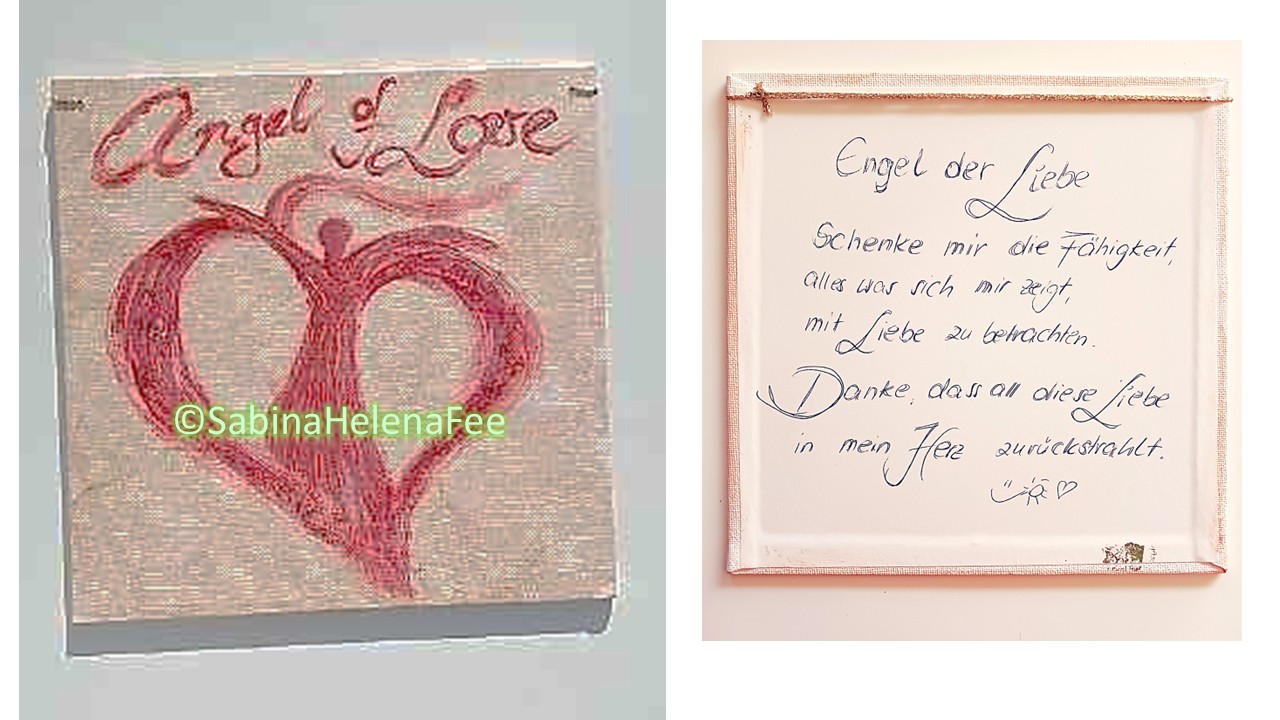 Angel of Love
©SabinaHelenaFee
Engel der Liebe
Schenke mir die Fähigkeit,
alles was sich mir zeigt,
mit Liebe zu betrachten.
Danke, dass all diese Liebe
in mein Herz zurückstrahlt.